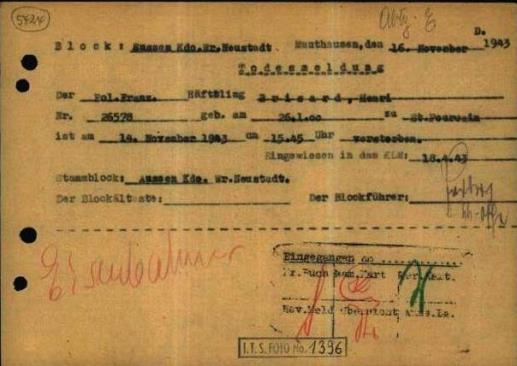 5424
Abg. E
D.
Block: Aussen Kdo.Wr.Neustadt Mauthausen,den 16. November 1943
Todesmeldung
Der Pol.Franz. Häftling Brisard, Henri
Nr 26578 geb.am 26.1.00 zu St.Pourcain
ist am 14. November 1943 um 15.45 Uhr verstorben.
Eingewiesen in das KLM: 18.4.43
Stammblock: Aussen Kdo. Wr.Neustadt.
Der Blockälteste: Der Blockführer:
Eisenbahner
Eingegangen am
I.T.S. FOTO No. 1396